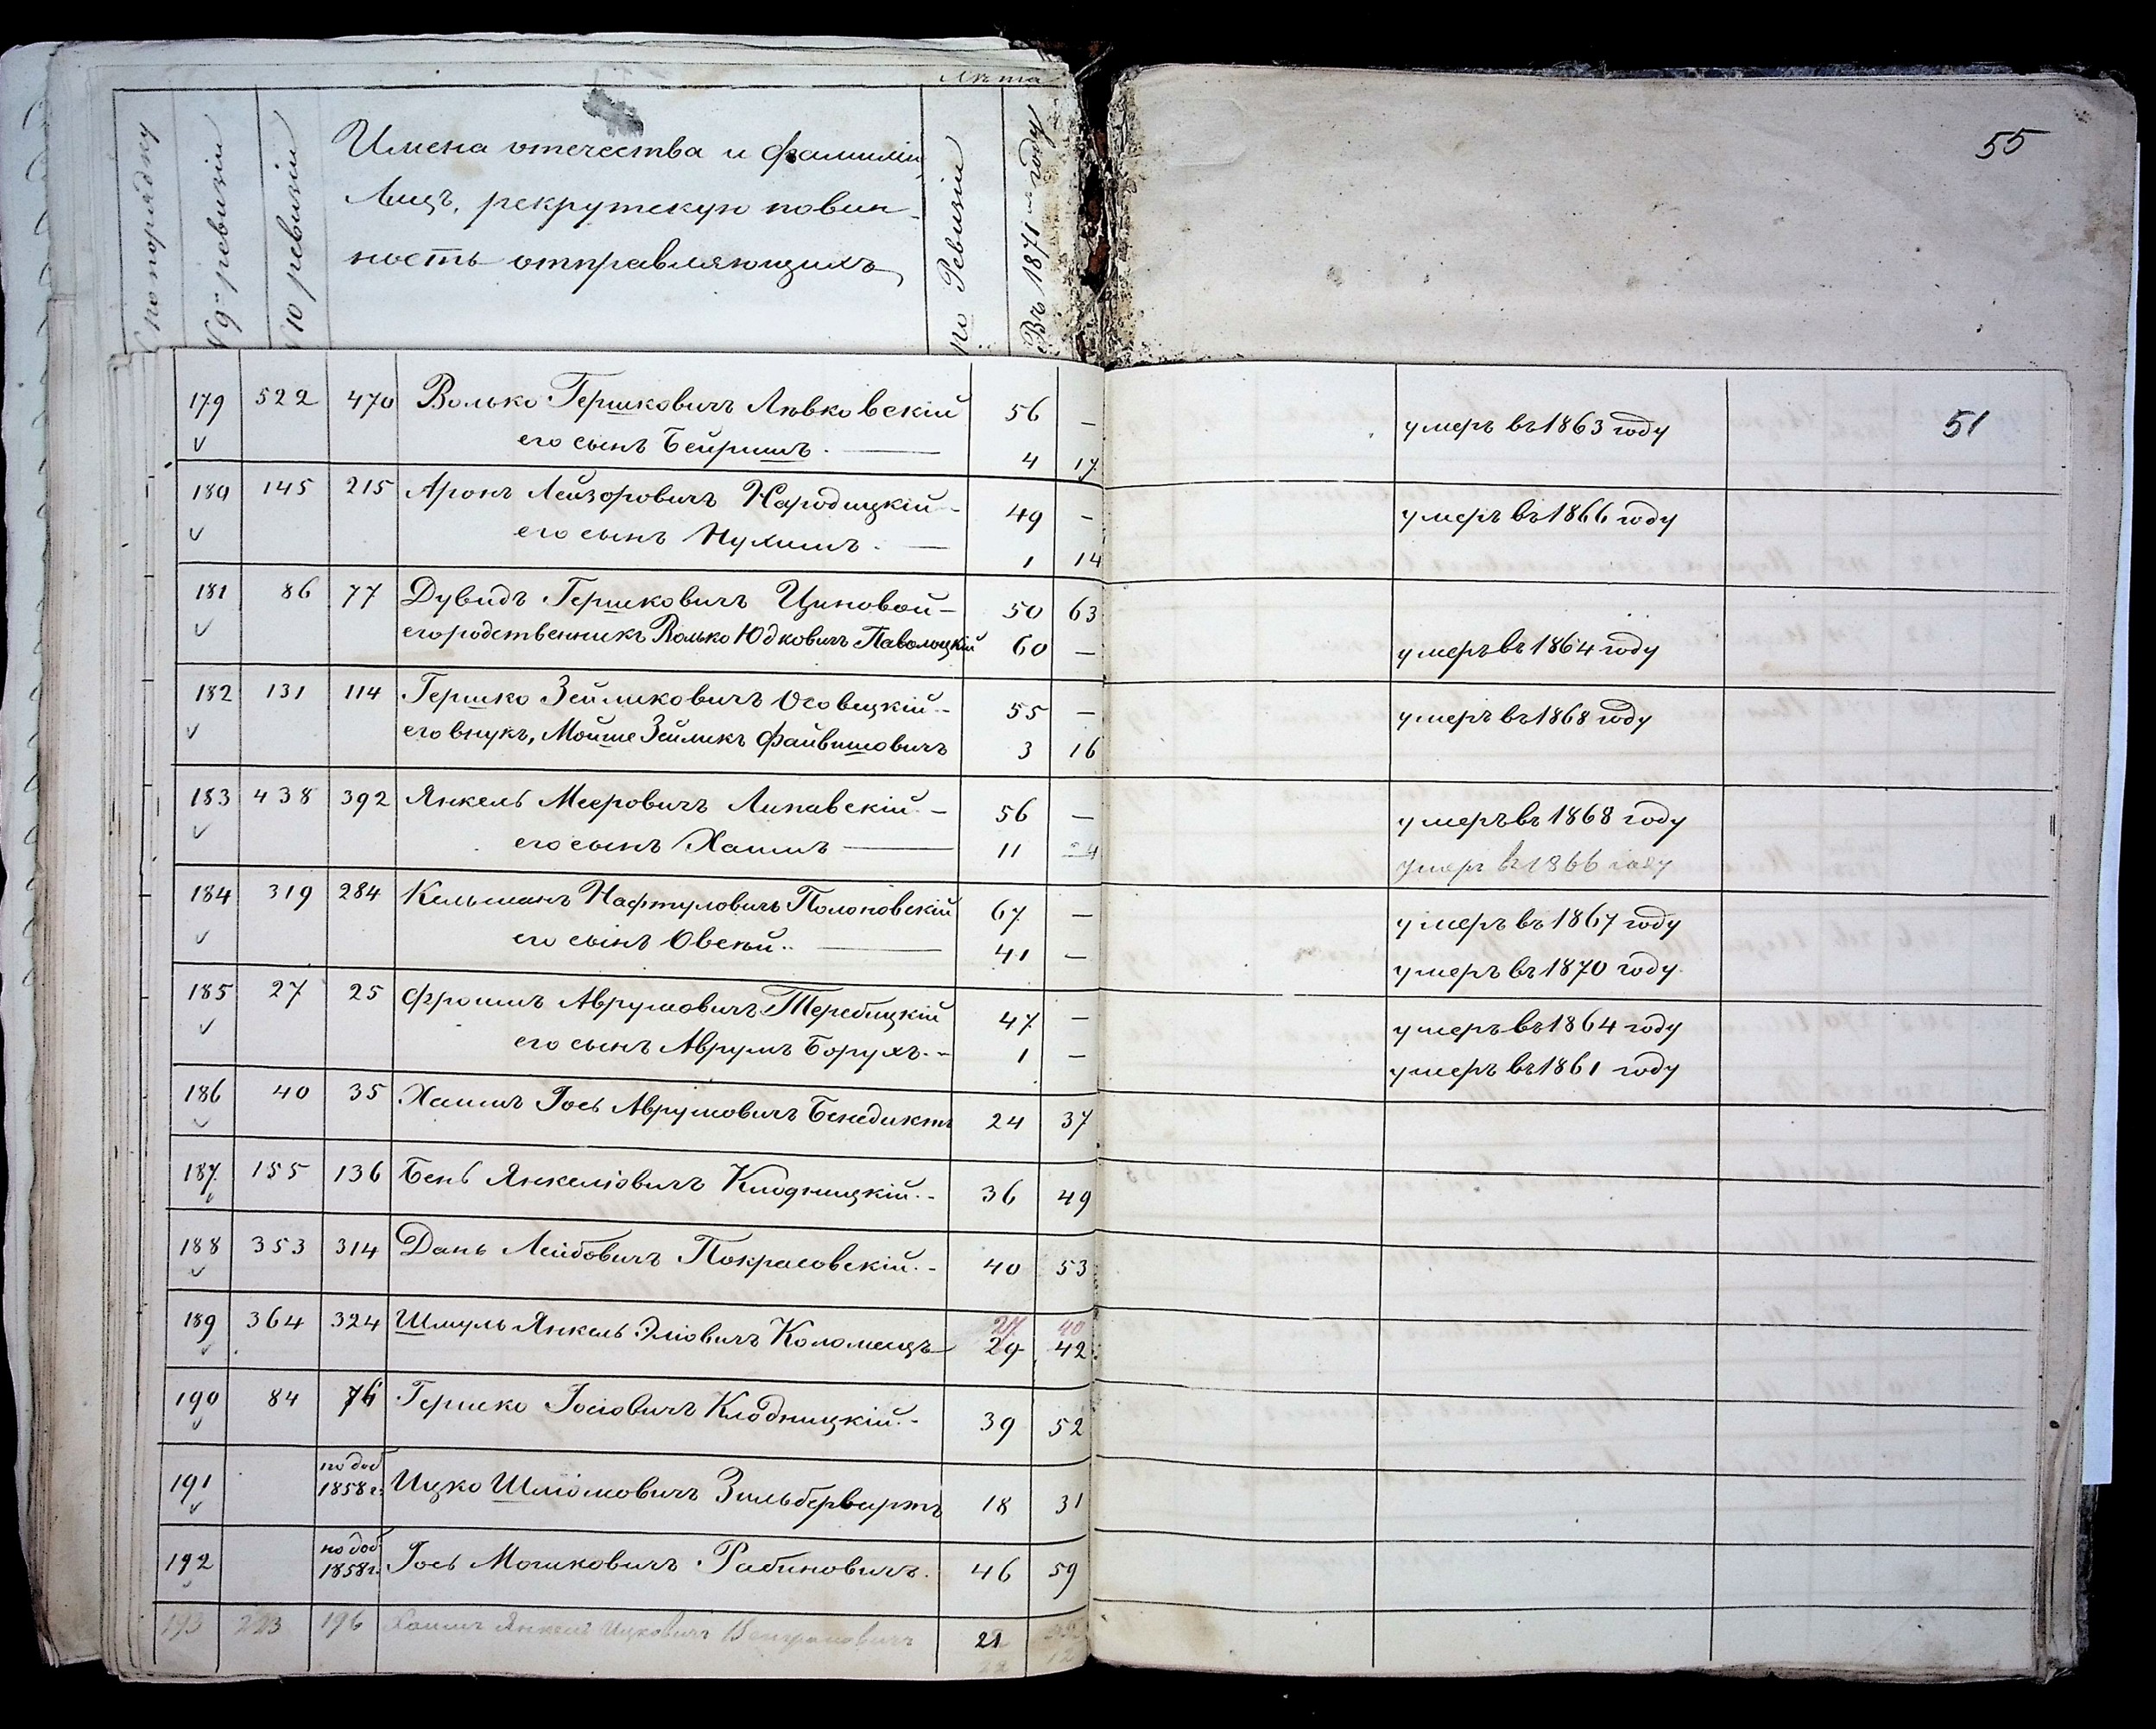 Лѣта
№ по порядку
№ 9й ревизіи
№ 10 ревизіи
Имена отечества и фамиліи
Лицъ, рекрутскую повин-
ность отправляющихъ
по Ревизіи
Въ 1871мъ году
55
179 522 470 Волько Гершковичъ Лювковскій 56 — умеръ въ 1863 году 51
его сынъ Бейришъ. — 4 17
180 145 215 Аронъ Лейзоровичъ Народицкій — 49 — умеръ въ 1866 году
его сынъ Нухимъ. — 1 14
181 86 77 Дувидъ Гершковичъ Циновой — 50 63
его родственникъ Волько Юдковичъ Паволоцкій 60 — умеръ въ 1864 году
182 131 114 Гершко Зейликовичъ Осовецкій.- 55 — умеръ въ 1868 году
его внукъ, Мойше Зейликъ Файвишовичъ 3 16
183 438 392 Янкель Мееровичъ Липавскій.- 56 — умеръ въ 1868 году
его сынъ Хаимъ — 11 умеръ въ 1866 году
184 319 284 Кельманъ Нафтуловичъ Полоновскій 67 — умеръ въ 1867 году
его сынъ Овсей.. — 41 — умеръ въ 1870 году.
185 27 25 Фроимъ Аврумовичъ Теребицкій 47 — умеръ въ 1864 году
его сынъ Аврумъ Борухъ.- 1 — умеръ въ 1861 году
186 40 35 Хаимъ Іось Аврумовичъ Бенедиктъ 24 37
187 155 136 Бень Янкеліовичъ Клодницкій.- 36 49
188 353 314 Дань Лейбовичъ Покрасовскій.- 40 53
27 40
189 364 324 Шмуль Янкель Эліовичъ Коломецъ 29 42
190 84 76 Гершко Іосіовичъ Клодницкій.- 39 52
по доб
191 1858 г. Ицко Шліомовичъ Зильбервартъ 18 31
по доб
192 1858 г. Іось Мошковичъ Рабиновичъ. 46 59
193 223 196 Хаимъ Янкель Ицковичъ 21